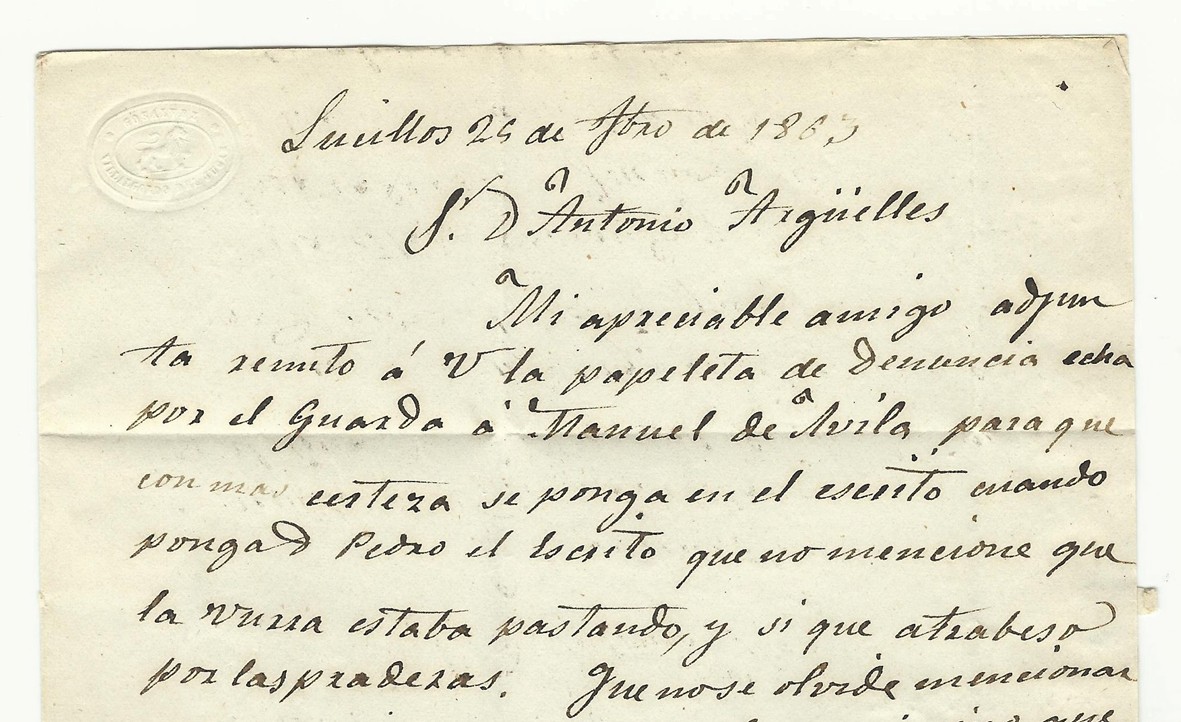 Lucillos 25 de Fbro de 1863
Sr. D Antonio Argüelles
Mi apreciable amigo adjun
ta remito á V la papeleta de Denuncia echa
por el Guarda á Manuel de Avila, para que
con mas certeza se ponga en el escrito cuando
ponga D Pedro el Escrito que no mencione que
la vurra estaba pastando, y si que atrabeso
por las praderas. Que no se olvide mencionar
que